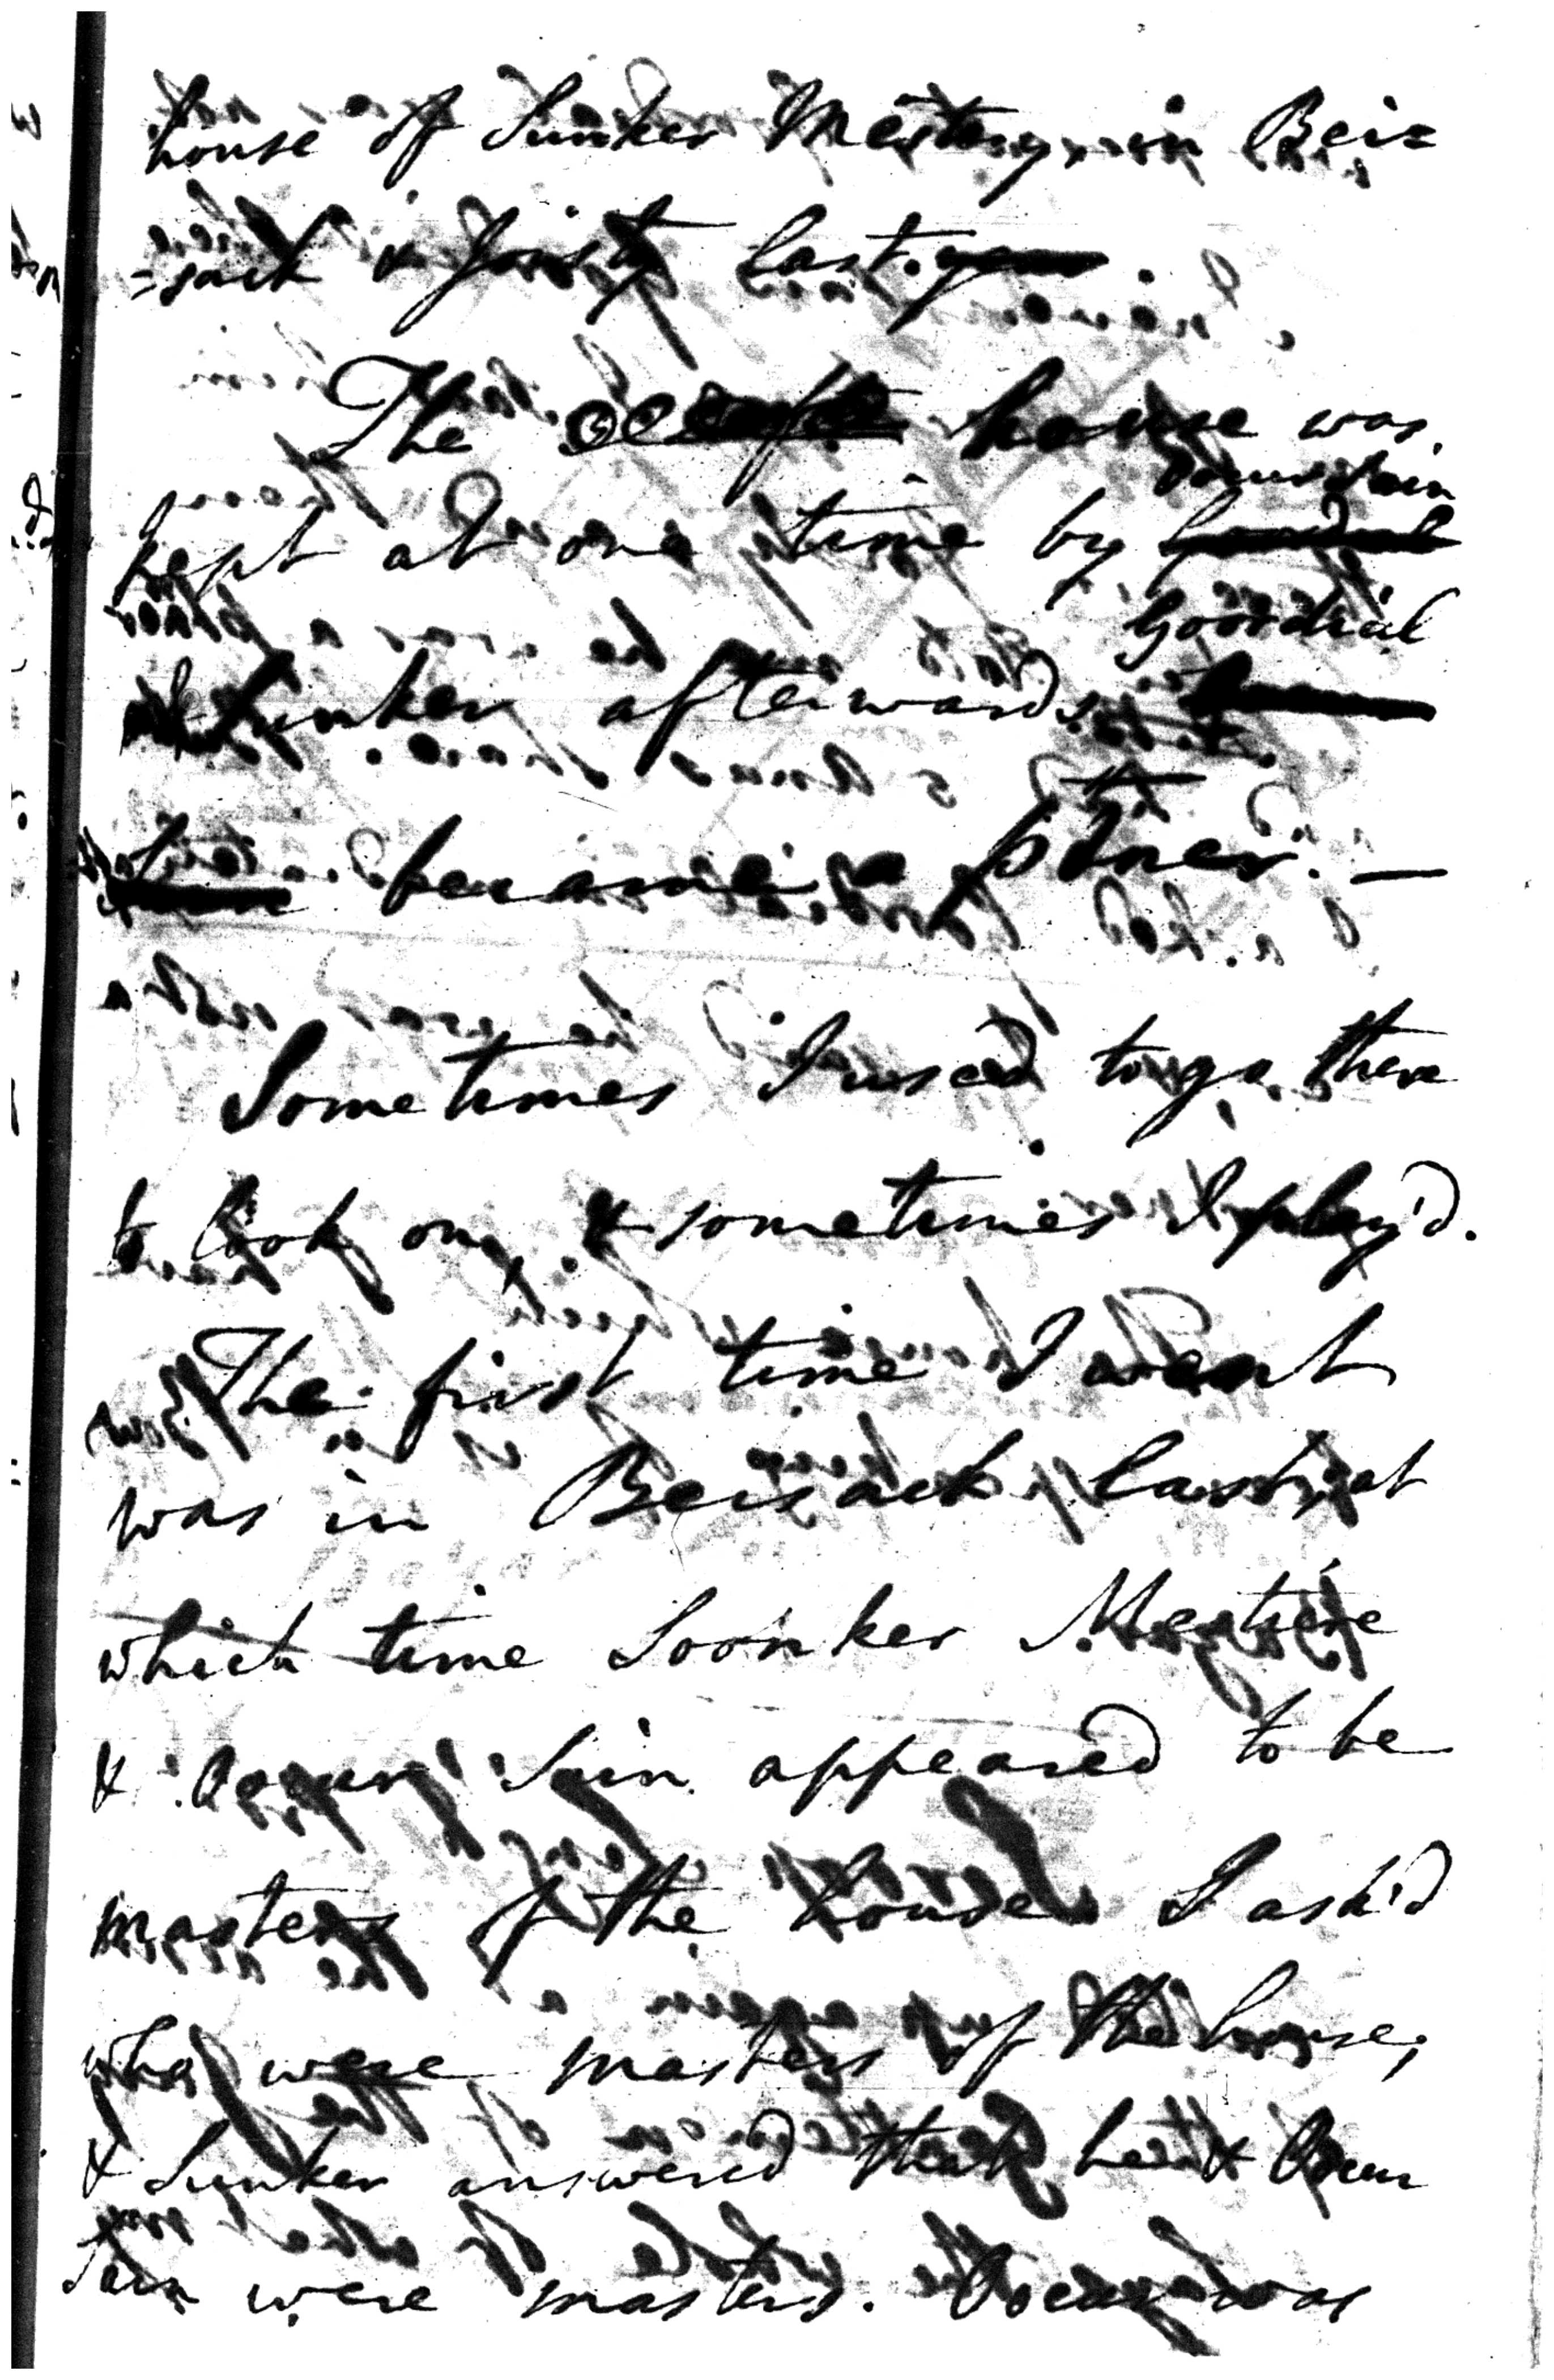 house of Sunker Mestery in Beis=
=sack & Joist last.
The house was
kept at one time by Sain
Goordial
Sunker afterwards
became a ptner. —
Sometimes I used to go there
to look on, & sometimes I play'd.
The first time I went
was in Beisack last, at
which time Soonker Mestrie
& Sain appeared to be
masters of the house. I ask'd
who were masters of the house,
& Sunker answered that he &
Sain were masters. was